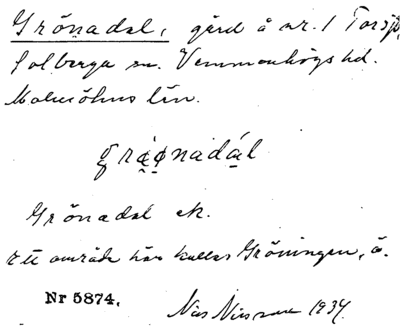 Grönadal, gård å nr. 1 Torsjö,
Solberga sn. Vemmenhögs hd.
Malmöhus län.
grǫ́nadál
Grönadal ek.
ett område här kallas Gröningen, ä.
Nr 5874.
Nils Nilsson 1934.